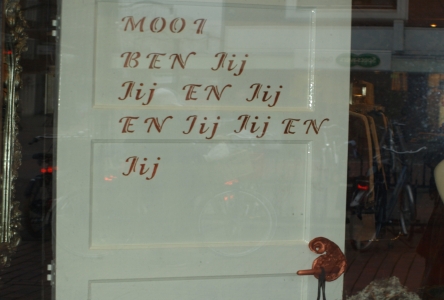 MOOI
BEN Jij
Jij EN Jij
EN Jij Jij EN
Jij